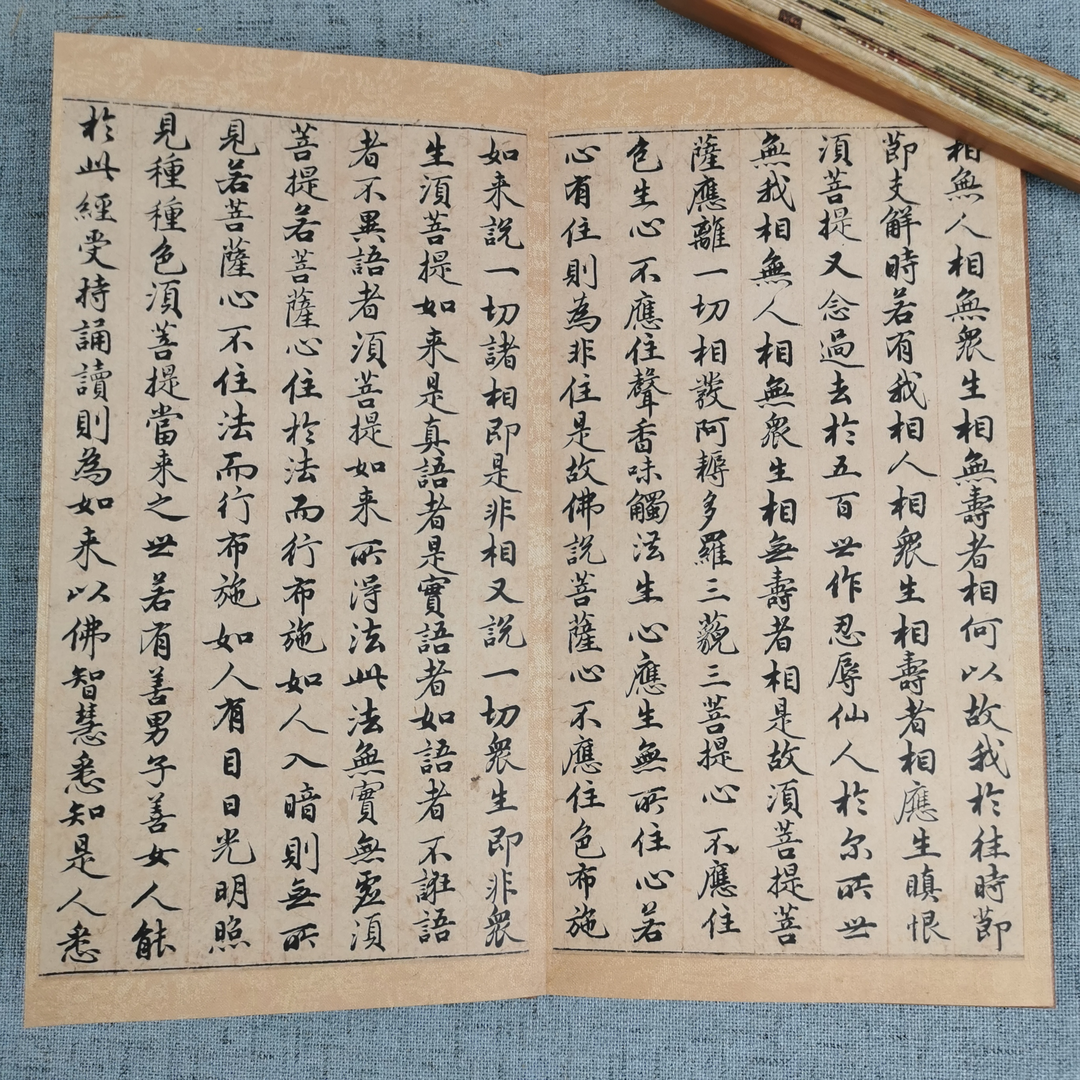 相無人相無衆生相無壽者相何以故我於往時節
節支解時若有我相人相衆生相壽者相應生瞋恨
須菩提又念過去於五百世作忍辱仙人於尔所世
無我相無人相無衆生相無壽者相是故須菩提菩
薩應離一切相發阿耨多羅三藐三菩提心不應住
色生心不應住聲香味觸法生心應生無所住心若
心有住則為非住是故佛說菩薩心不應住色布施
如来說一切諸相即是非相又說一切衆生即非衆
生須菩提如来是真語者是實語者如語者不誑語
者不異語者須菩提如来所淂法此法無實無虛須
菩提若菩薩心住於法而行布施如人入暗則無所
見若菩薩心不住法而行布施如人有目日光明照
見種種色須菩提當来之世若有善男子善女人能
於此經受持誦讀則為如来以佛智慧悉知是人悉